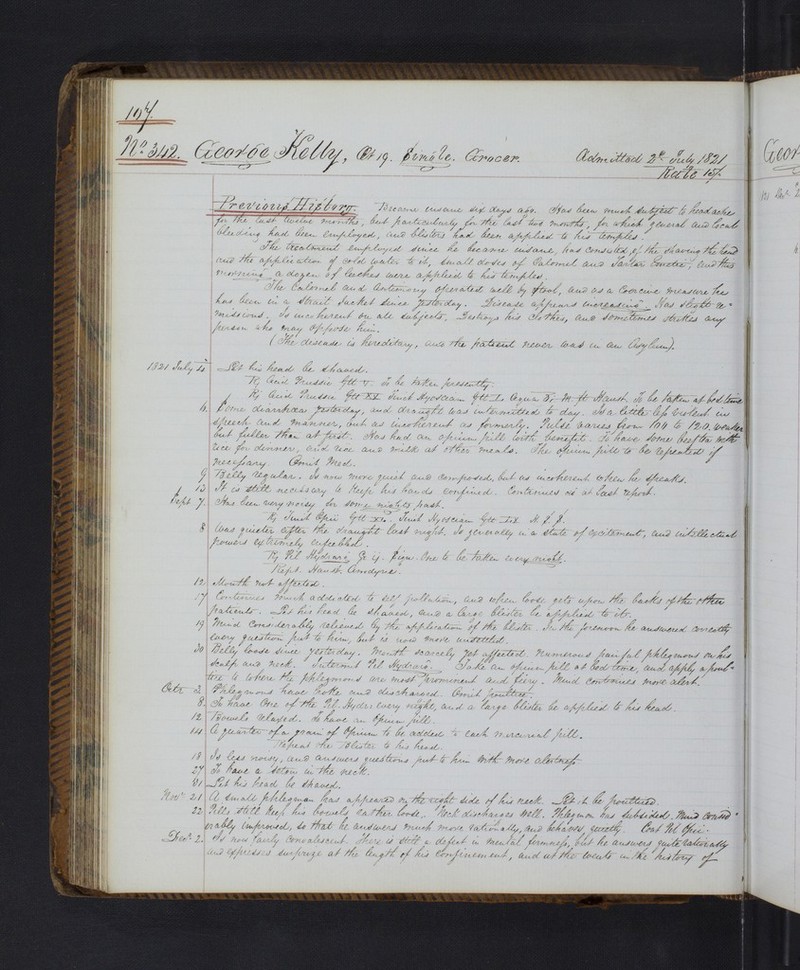 107.
No. 3112. George Kelly, Æt 19. Single. Grocer. Admitted 2d July 1821
Previous History. Became insane six days ago. Has been much subject to headache
for the last twelve months, but particularly for the last two months, for which general and local
bleeding had been employed, and blisters had been applied to his temples.
The treatment employed since he became insane, has consisted, of the shaving the head
and the application of cold water to it, small doses of Calomel and Tartar Emetic, and this
morning a dozen of leeches were applied to his temples.
The Calomel and Antimony operated well by stool, and as a Coercive measure he
has been in a Strait Jacket since yesterday. Disease appears increasing. Has slight re-
missions. Is incoherent on all subjects. Destroys his clothes, and sometimes strikes any
person who may oppose him.
(The disease is hereditary, and the patient never was in an Asylum).
1821 July Let his head be shaved.
Rx Acid Prussic Gtt v. To be taken presently.
Rx Acid Prussic Gtt Tinct Hyosciam Gtt Aqua ft Haust. To be taken at bed time
4. Some diarrhœa yesterday, and draught was intermitted to day. Is a little less violent in
speech and manner, but as incoherent as formerly. Pulse varies from 100 to 120, weaker
but fuller than at first. Has had an opium pill with benefit. To have some beef tea with
rice for dinner, and rice and milk at other meals. The opium pill to be repeated if
necessary. Omit Med.
9 Belly regular. Is now more quiet and composed, but as incoherent when he speaks.
13 It is still necessary to keep his hands confined. Continues as at last report.
Sept 7. Has been very noisy for some nights past.
Rx Tinct Opii Gtt Tinct Hyosciam Gtt
8 Was quieter after the draught last night. Is generally in a state of excitement, and intellectual
powers extremely enfeebled.
Rx Pil Hydrarg One to be taken every night.
Rept. Haust. Anodyne.
12 Mouth not affected.
17 Continues much addicted to self pollution, and when loose gets upon the backs of the other
patients. Let his head be shaved, and a large blister be applied to it.
19 Mind considerably relieved by the application of the blister. In the forenoon he answered correctly
every question put to him, but is now more unsettled.
30 Belly loose since yesterday. Mouth scarcely yet affected. Numerous painful phlegmons on his
scalp and neck. Intermit Pil Hydrarg. Take an opium pill at bed time, and apply a poul-
tice to where the phlegmons are most prominent and fiery. Mind continues more alert.
Octr 2 Phlegmons have broke and discharged. Omit poultice.
8. To have One of the Pil. Hydr: every night, and a large blister be applied to his head.
12 Bowels relaxed. To have an Opium pill.
14 A quarter of a grain of Opium to be added to each mercurial pill.
Repeat the blister to his head.
18 Is less noisy, and answers questions put to him with more alertness.
27 To have a seton in the neck.
31 Let his head be shaved.
Novr 21 A small phlegmon has appeared on the right side of his neck. Let it be poulticed.
22 Pills still keep his bowels rather loose. Neck discharges well. Phlegmon has subsided. Mind consid-
erably improved, so that he answers much more rationally, and behaves quietly. Cont Pil Opii.
Decr 2. Is now fairly convalescent. There is still a defect in mental firmness, but he answers quite rationally
and expresses surprize at the length of his Confinement, and at the events in the history of
Geor